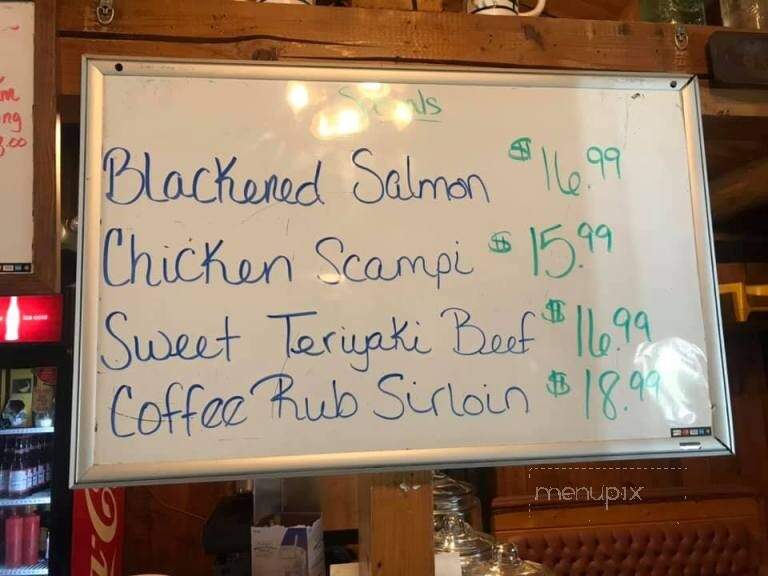 Specials
Blackened Salmon $16.99
Chicken Scampi $15.99
Sweet Teriyaki Beef $16.99
Coffee Rub Sirloin $18.99
menupix